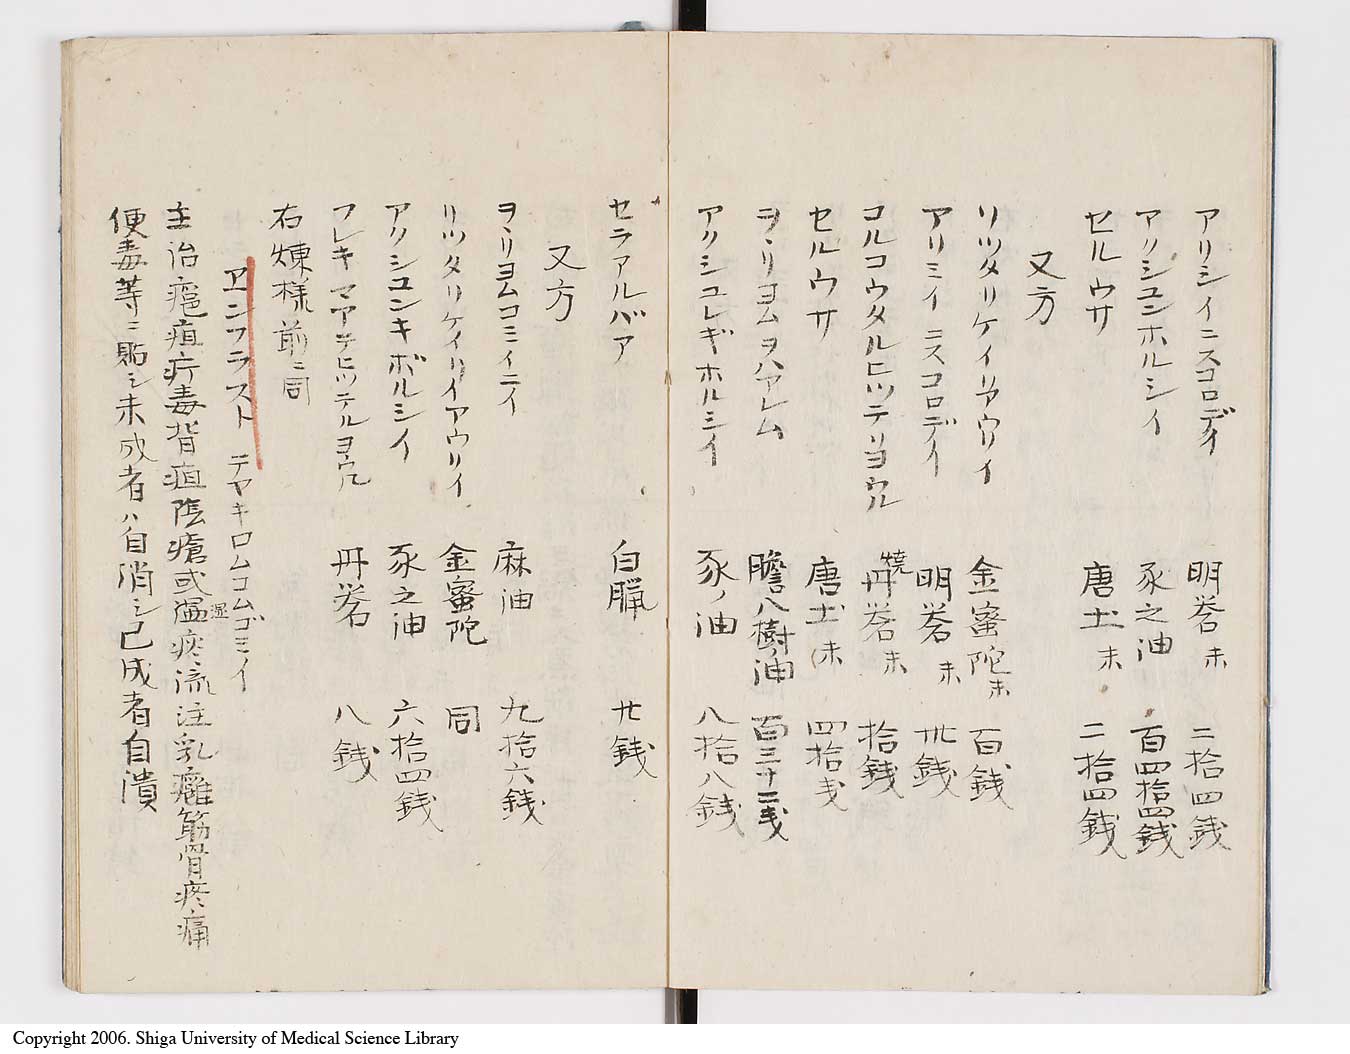 アリシイニスコロデイ 明礬末 二拾四銭
アクシユンホルシイ 豕之油 百四拾四銭
セルウサ 唐土末 二拾四銭
又方
リツタリケイリアウリイ 金蜜陀末 百銭
アリミイニスコロデイ 明礬末 卅銭
コルコウタルヒツテリヨウル 焼丹礬末 拾銭
セルウサ 唐土末 四拾戋
ヲヽリヨムヲハアレム 膽八樹油 百三十二戋
アクシユレギホルシイ 豕ノ油 八拾八銭
セラアルバア 白臘 廿銭
又方
ヲヽリヨムコミイニイ 麻油 九拾六銭
リツタリケイリイアウリイ 金蜜陀 同
アクシユンキボルシイ 豕之油 六拾四銭
フレキマアテヒツテルヨウル 丹礬 八銭
右煉様前ニ同
ヱンフラスト テヤキロムコムゴミイ
主治瘟疽疔毒背疽陰瘡或瘟湿疼流注乳癰筋骨疼痛
便毒等ニ貼シ未成者ハ自消シ已成者自潰
Copyright 2006. Shiga University of Medical Science Library